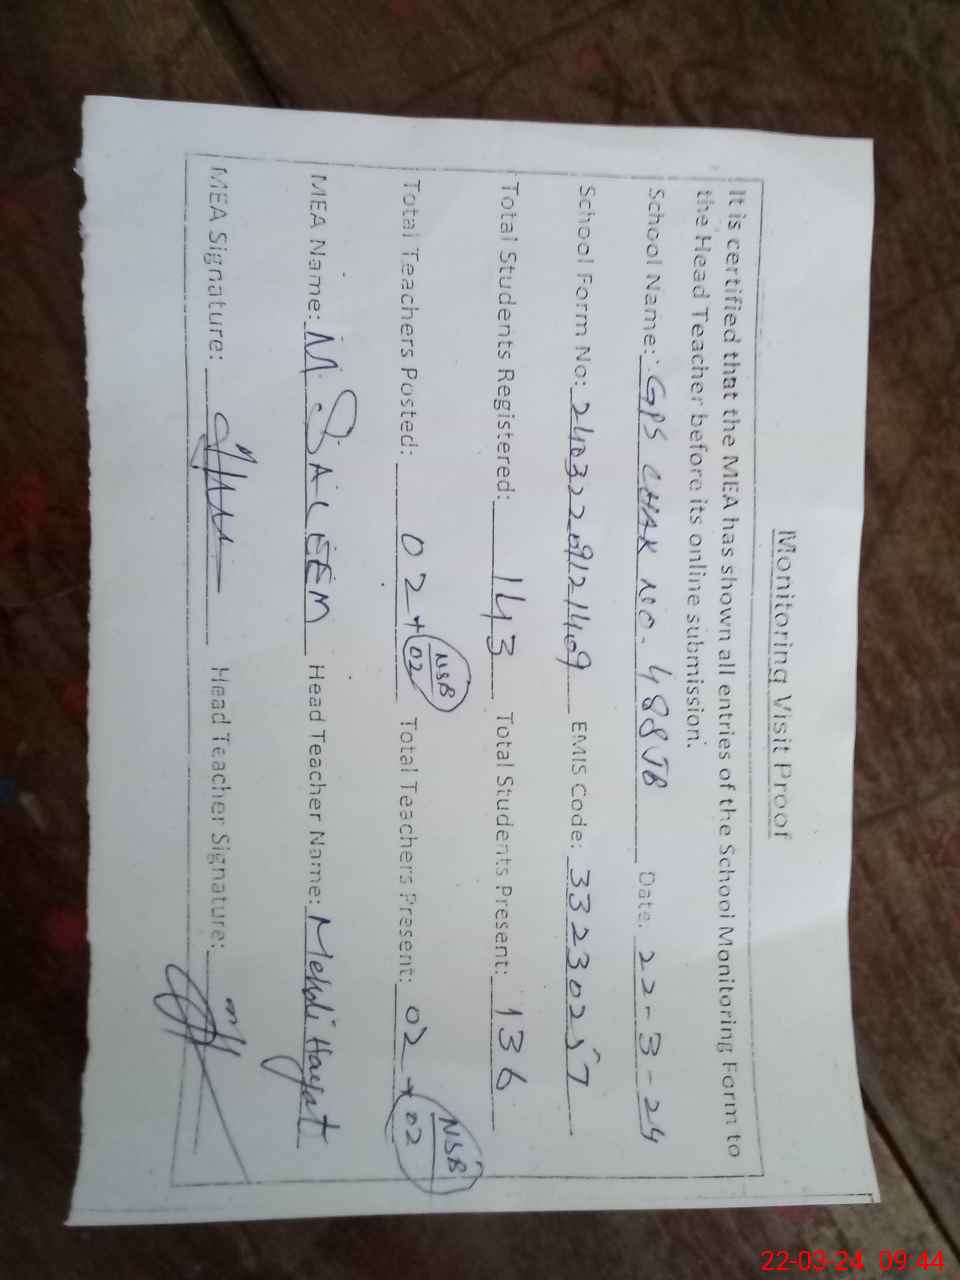 Monitoring Visit Proof
It is certified that the MEA has shown all entries of the School Monitoring Form to
the Head Teacher before its online submission.
School Name: GPS CHAK NO. 488JB Date: 22-3-24
School Form No: 24032209121409 EMIS Code: 33230257
Total Students Registered: 143 Total Students Present: 136
Total Teachers Posted: 02+ NSB 02 Total Teachers Present: 02 + NSB 02
MEA Name: M SALEEM Head Teacher Name: Mehdi Hayat
MEA Signature: Head Teacher Signature:
22-03-24 09:44